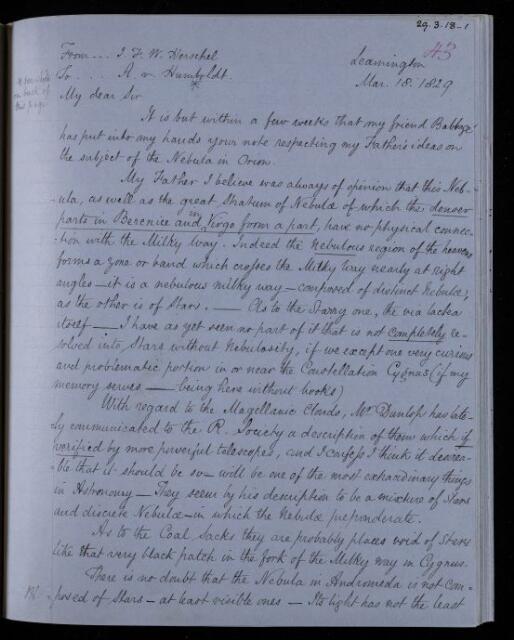 29.3.18-1
43
From... J. F. W. Herschel
Leamington
To... A. v. Humboldt.
Mar. 18. 1829
* see note on back of this page
My dear Sir
It is but within a few weeks that my friend Babbage
has put into my hands your note respecting my Father's ideas on
the subject of the Nebula in Orion.
My Father I believe was always of opinion that this Neb-
ula, as well as the great Stratum of Nebulæ of which the denser
parts in Berenice and in Virgo form a part, have no physical connec-
-tion with the Milky Way. Indeed the nebulous region of the heavens
forms a zone or band which crosses the Milky Way nearly at right
angles — it is a nebulous milky way — composed of distinct Nebulæ,
as the other is of Stars. — As to the Starry one, the via lactea
itself — I have as yet seen no part of it that is not completely re-
solved into Stars without Nebulosity, if we except one very curious
and problematic portion in or near the Constellation Cygnus (if my
memory serves — being here without books)
With regard to the Magellanic Clouds, Mr Dunlop has late-
ly communicated to the R. Society a description of them which if
verified by more powerful telescopes, and I confess I think it desira-
ble that it should be so — will be one of the most extraordinary things
in Astronomy — They seem by his description to be a mixture of Stars
and discrete Nebulæ — in which the Nebulæ preponderate.
As to the Coal Sacks they are probably places void of Stars
like that very black patch in the fork of the Milky way in Cygnus.
There is no doubt that the Nebula in Andromeda is not com-
posed of Stars — at least visible ones — Its light has not the least